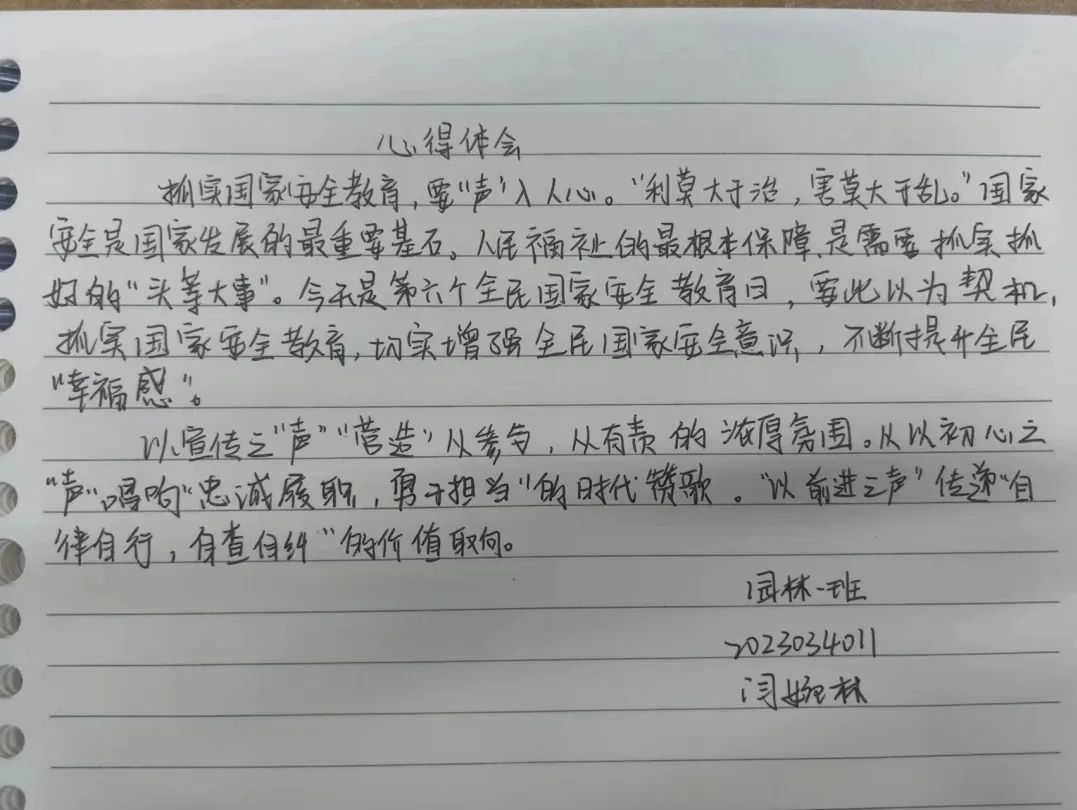 心得体会
抓实国家安全教育,要"声"入人心。"利莫大于治,害莫大于乱。"国家
安全是国家发展的最重要基石。人民福祉的最根本保障.是需要抓实抓
好的"头等大事"。今天是第六个全民国家安全教育日,要此以为契机,
抓实国家安全教育,切实增强全民国家安全意识,不断提升全民
"幸福感"。
以宣传之"声""营造"从参与,从有责的浓厚氛围。从以初心之
"声"唱响"忠诚履职,勇于担当"的时代赞歌。"以前进之声"传递"自
律自行,自查自纠"的价值取向。
园林一班
2023034011
闫婉林